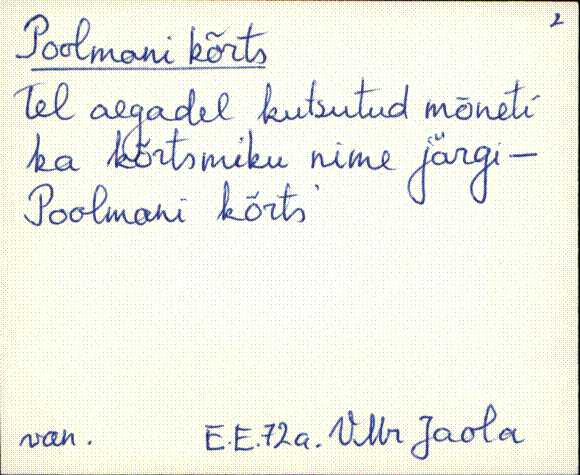 2
Poolmani kõrts
Tel aegadel kutsutud mõneti
ka kõrtsmiku nime järgi —
Poolmani kõrts
van. E.E.72a. VMr Jaola